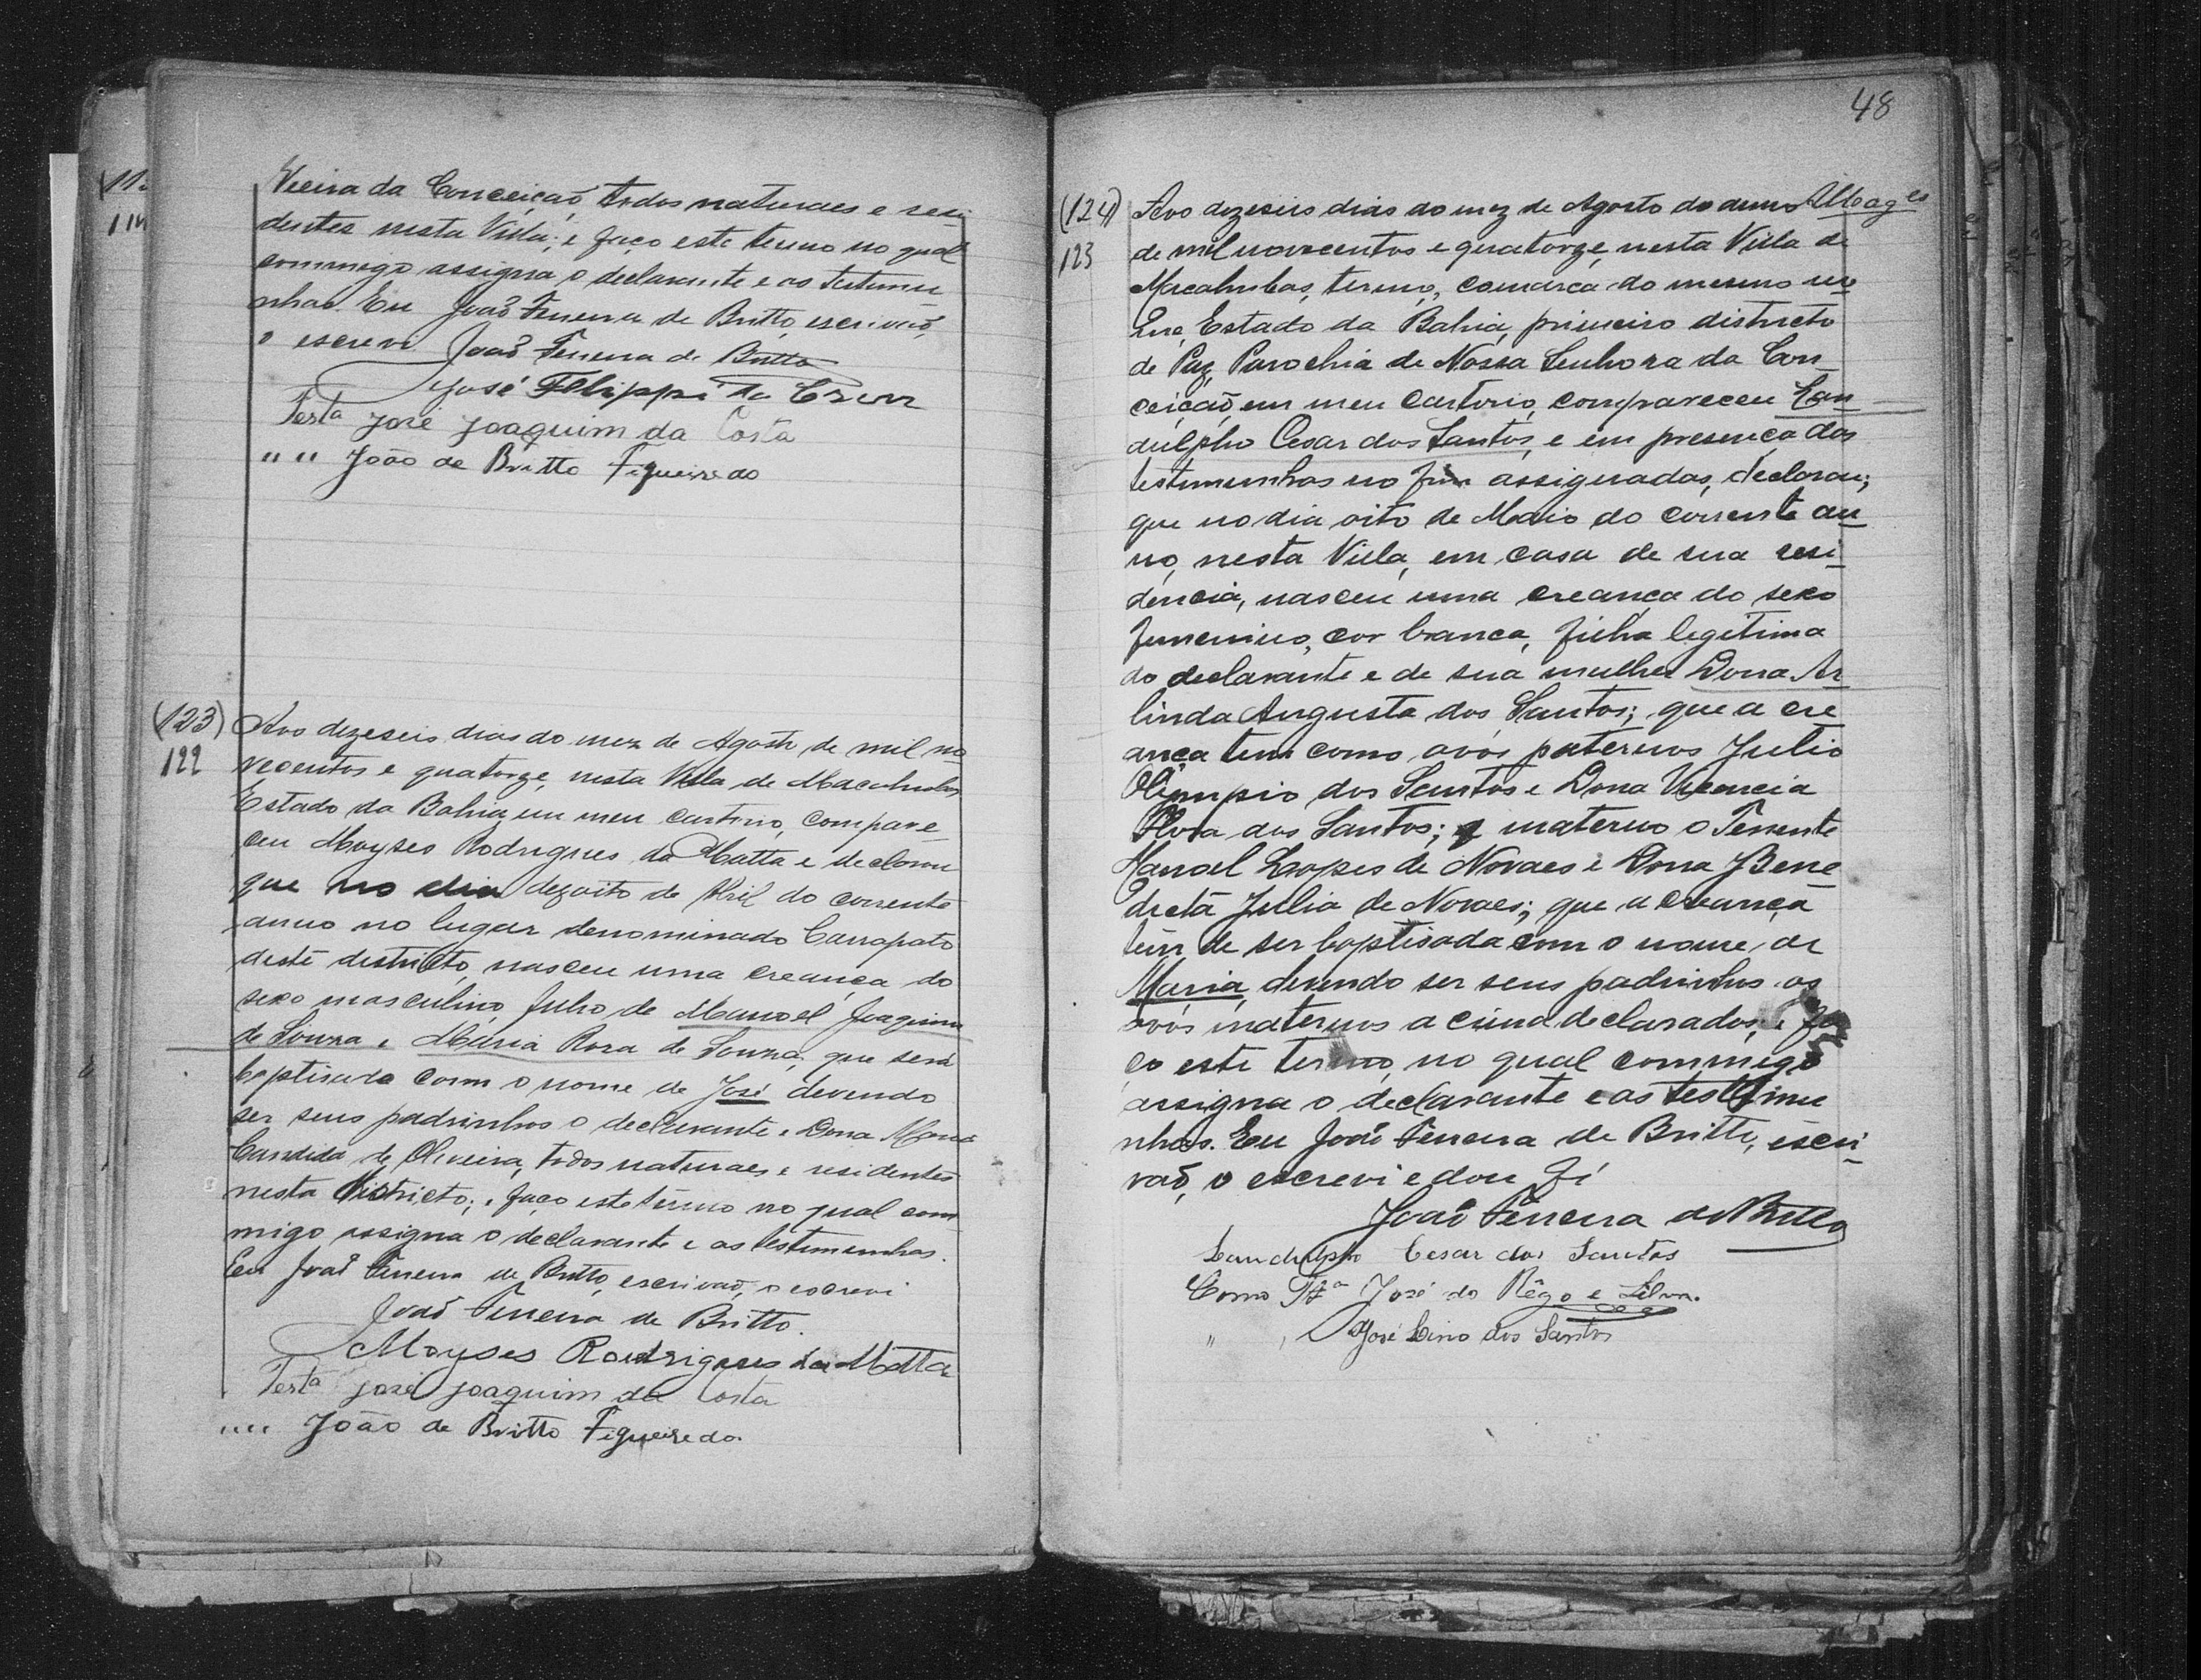 (11
114
Vieira da Conceição, todos naturaes e resi
dentes nesta Villa; e faço este termo no qual
commigo assigna o declarante e as testemu
nhas. Eu João Ferreira de Britto, escrivaõ,
o escrevi João Ferreira de Britto
José Felippi da Cruz
Testª José Joaquim da Costa
" " João de Britto Figueiredo
(123)
122
Aos dezeseis dias do mez de Agosto de mil no
vecentos e quatorze, nesta Villa de Macahubas
Estado da Bahia, em meu cartorio, compare
ceu Moyses Rodrigues da Matta e declarou
que no dia dezoito de Abril do corrente
anno no lugar denominado Carrapato
deste districto, nasceu uma creança do
sexo masculino, filho de Manoel Joaquim
de Souza e Maria Rosa de Souza, que será
baptisada com o nome de José devendo
ser seus padrinhos o declarante e Dona Maria
Candida de Oliveira, todos naturaes e residentes
nesta Districto; e faço este termo no qual com
migo assigna o declarante e as testemunhas.
Eu João Ferreira de Britto, escrivaõ, o escrevi
João Ferreira de Britto.
Moyses Rodrigues da Matta
Testª José Joaquim da Costa
" " João de Britto Figueiredo
48
(124)
123
Aos dezeseis dias do mez de Agosto do anno
de mil novecentos e quatorze, nesta Villa de
Macahubas, termo, comarca do mesmo no
me, Estado da Bahia, primeiro districto
de Paz, Parochia de Nossa Senhora da Con
ceição, em meu cartorio, compareceu Lan
dulpho Cesar dos Santos, e em presença das
testemunhas no fim assignadas, declarou;
que no dia oito de Maio do corrente an
no, nesta Villa, em casa de sua resi
dencia, nasceu uma creança do sexo
femenino, cor branca, filha legitima
do declarante e de sua mulher Dona Ar
linda Augusta dos Santos; que a cre
ança tem como avós paternos Julio
Olympio dos Santos e Dona Vicencia
dos Santos; e materno o Tenente
Manoel Lopes de Novaes e Dona Bene
dicta Julia de Novaes; que a creança
tem de ser baptisada com o nome de
Maria, devendo ser seus padrinhos os
avós maternos acima declarados, e fa
ço este termo, no qual commigo
assigna o declarante e as testimu
nhas. Eu João Ferreira de Britto, escri
vaõ, o escrevi e dou fé
João Ferreira de Britto
Landulpho Cesar dos Santos
Como Tª José do Rêgo e Silva.
" José Lino dos Santos